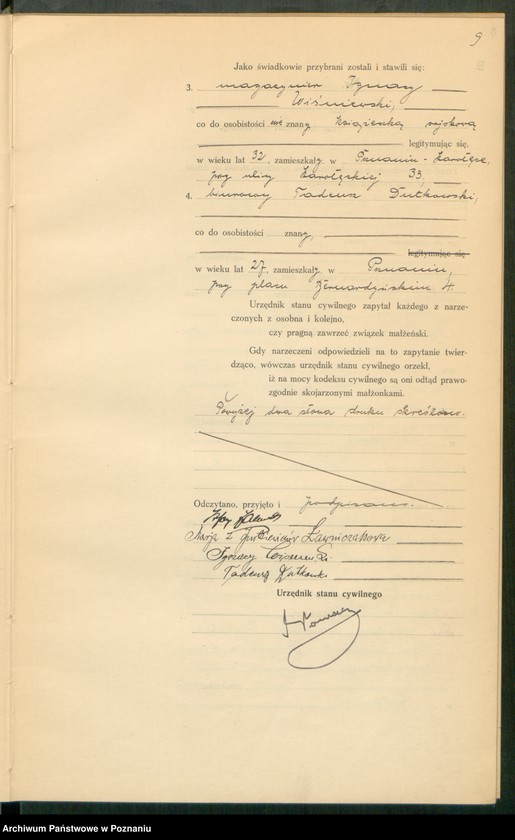 9
Jako świadkowie przybrani zostali i stawili się:
3. magazynier Ignacy
Wiśniewski,
co do osobistości nie znany książeczką wojskową
legitymując się.
w wieku lat 32, zamieszkały w Poznaniu-
przy ulicy 33,
4. biurowy Tadeusz Dutkowski,
co do osobistości znany,
legitymując się
w wieku lat 27, zamieszkały w Poznaniu,
przy placu Bernardyńskim 4.
Urzędnik stanu cywilnego zapytał każdego z narze-
czonych z osobna i kolejno,
czy pragną zawrzeć związek małżeński.
Gdy narzeczeni odpowiedzieli na to zapytanie twier-
dząco, wówczas urzędnik stanu cywilnego orzekł,
iż na mocy kodeksu cywilnego są oni odtąd prawo-
zgodnie skojarzonymi małżonkami.
Powyżej dwa słowa druku skreślono.
Odczytano, przyjęto i podpisano.
Marja z Ławniczakowa
Ignacy Wiśniewski
Tadeusz Dutkowski
Urzędnik stanu cywilnego
Archiwum Państwowe w Poznaniu